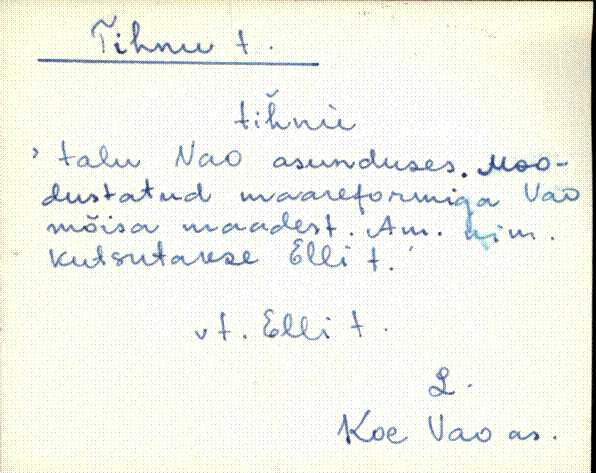 Tihnu t.
tihnu
' talu Vao asunduses. Moo-
dustatud maareformiga Vao
mõisa maadest. Am. nim.
kutsutakse Elli t.
vt. Elli t.
L.
Koe Vao as.